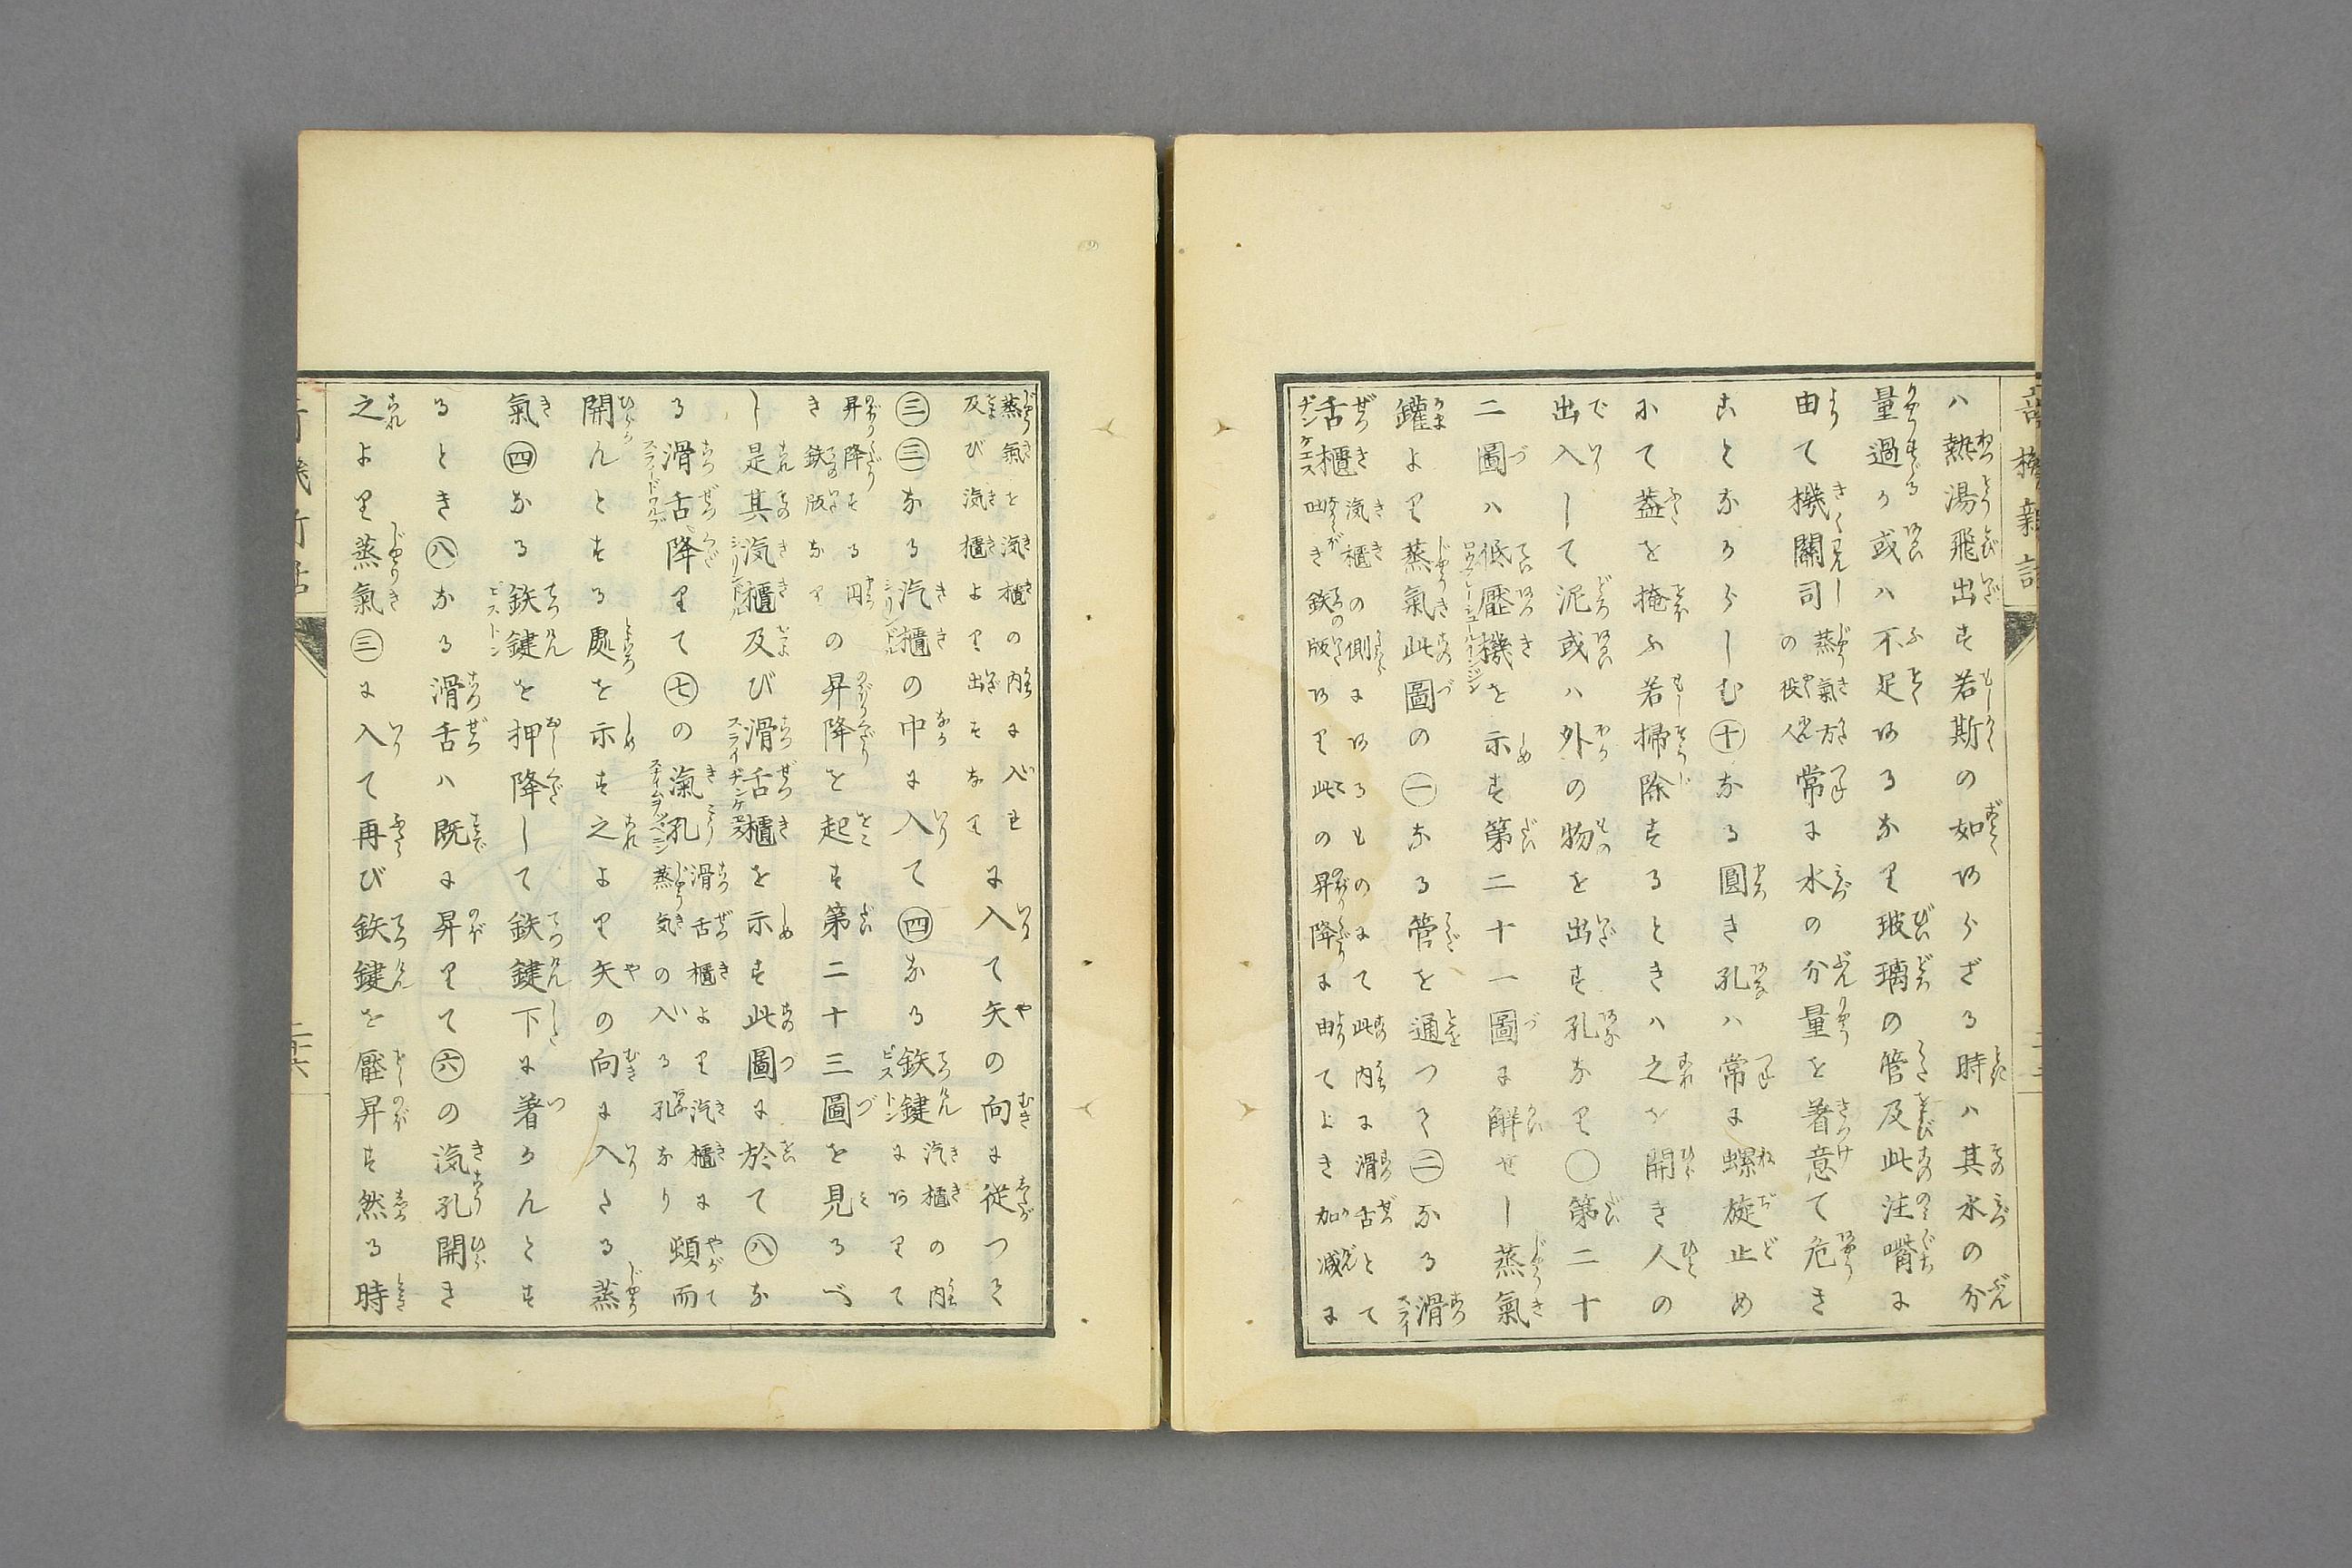 ハ熱湯飛出す若斯の如あらざる時ハ其水の分
量過るか或ハ不足あるなり玻璃の管及此注嘴に
由て機關司蒸氣方の役人常に水の分量を着意て危き
ことなからしむ㊉なる圓き孔ハ常に螺旋止め
にて蓋を掩ふ若掃除するときハ之を開き人の
出入して泥或ハ外の物を出す孔なり〇第二十
二圖ハ低壓機を示す第二十一圖に解せし蒸氣
鑵より蒸氣此圖の㊀なる管を通つて㊁なる滑
舌櫃汽櫃の側にあるものにて此内に滑舌とて出き鉄版あり此の昇降に由てよき加減に
蒸氣を汽櫃の内に入れ及び汽櫃より出すなりに入て矢の向に従つて
㊂㊂なる汽櫃の中に入て㊃なる鉄鍵汽櫃の内にありて
昇降する円き鉄版なりの昇降を起す第二十三圖を見るべ
し是其汽櫃及び滑舌櫃を示す此圖に於て㊇な
る滑舌降りて㊆の氣孔滑舌櫃より汽櫃に蒸気の入る孔なり頓而
開んとする處を示す之より矢の向に入たる蒸
氣㊃なる鉄鍵を押降して鉄鍵下に着かんとす
るとき㊇なる滑舌ハ既に昇りて㊅の汽孔開き
之より蒸氣㊂に入て再び鉄鍵を壓昇す然る時